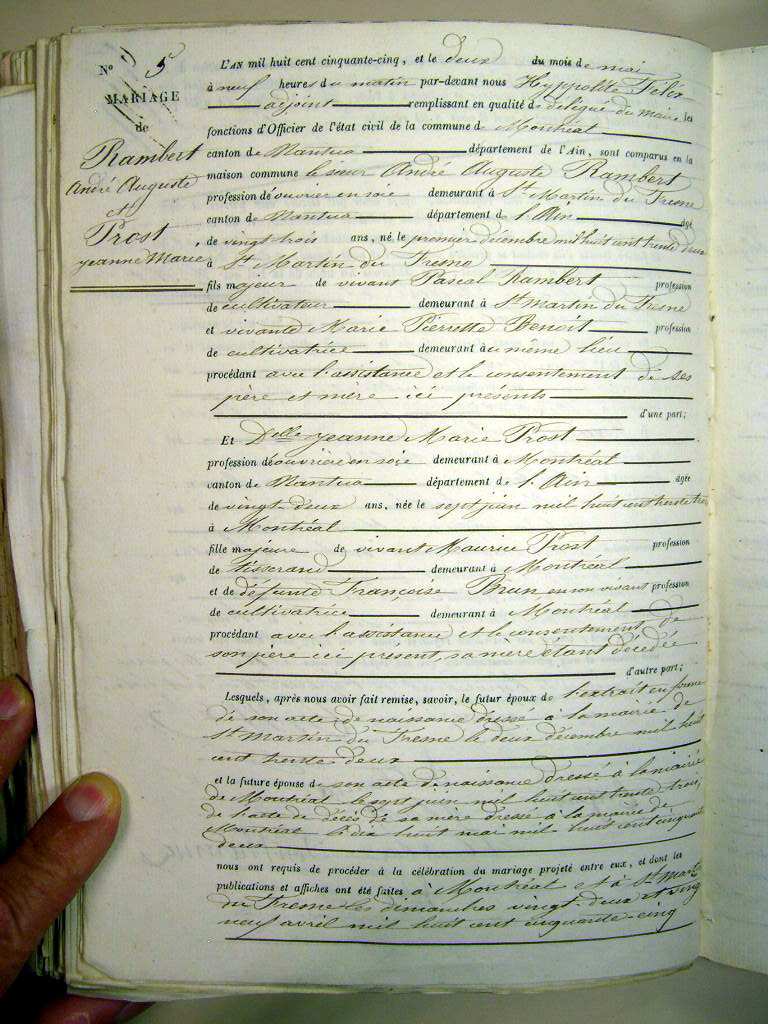 N° 5
MARIAGE
de
Rambert
André Auguste
et
Prost
jeanne Marie
L'AN mil huit cent cinquante-cinq, et le deux du mois de mai
à neuf heures du matin par-devant nous Hyppolite Félix
adjoint remplissant en qualité de délégué du maire les
fonctions d'Officier de l'état civil de la commune de Montréal
canton de Nantua département de l'Ain, sont comparus en la
maison commune le sieur André Auguste Rambert
profession d'ouvrier en soie demeurant à St Martin du Fresne
canton de Nantua département de l'Ain âgé
de vingt trois ans, né le premier décembre mil huit cent trente deux
à St Martin du Fresne
fils majeur de vivant Pascal Rambert profession
de cultivateur demeurant à St Martin du Fresne
et vivante Marie Pierrette Benoit profession
de cultivatrice demeurant au même lieu
procédant avec l'assistance et le consentement de ses
père et mère ici présents
d'une part;
Et Delle jeanne Marie Prost
profession d'ouvrière en soie demeurant à Montréal
canton de Nantua département de l'Ain âgée
de vingt-deux ans, née le sept juin mil huit cent trente trois
à Montréal
fille majeure de vivant Maurice Prost profession
de tisserand demeurant à Montréal
et de défunte Françoise Brun en son vivant profession
de cultivatrice demeurant à Montréal
procédant avec l'assistance et le consentement de
son père ici présent, sa mère étant décédée
d'autre part;
Lesquels, après nous avoir fait remise, savoir, le futur époux de l'extrait en forme
de son acte de naissance dressé à la mairie de
St Martin du Fresne le deux décembre mil huit
cent trente deux
et la future épouse de son acte de naissance dressé à la mairie
de Montréal le sept juin mil huit cent trente trois,
de l'acte de décès de sa mère dressé à la mairie de
Montréal le dix huit mai mil huit cent cinquante
deux
nous ont requis de procéder à la célébration du mariage projeté entre eux, et dont les
publications et affiches ont été faites à Montréal et à St Martin
du Fresne les dimanches vingt-deux et vingt
neuf avril mil huit cent cinquante cinq